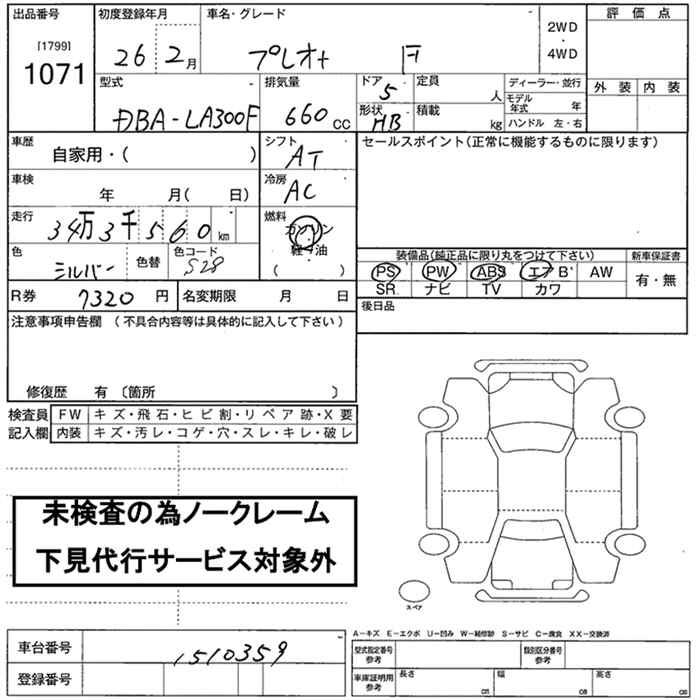 出品番号 初度登録年月 車名・グレード 評価点
[1799]
1071
26 2月 プレオ+ F
2WD
・
4WD
外装 内装
型式 排気量 ドア 定員 ディーラー・並行
DBA-LA300F 660 CC 5 人 モデル年式 年
形状 積載 ハンドル 左・右
HB kg
車歴 シフト セールスポイント(正常に機能するものに限ります)
自家用・( ) AT
車検 冷房
年 月( 日) AC
走行 燃料
34万3千560km ガソリン
軽油
( )
色 色替 色コード
シルバー S28
装備品(純品に限り丸をつけて下さい) 新車保証書
PS PW ABS エアB AW 有・無
SR ナビ TV カワ
R券 7320 円 名変期限 月 日 後日品
注意事項申告欄 (不具合内容等は具体的に記入して下さい)
修復歴 有 〔箇所 〕
検査員 FW キズ・飛石・ヒビ割・リペア跡・X要
記入欄 内装 キズ・汚レ・コゲ・穴・スレ・キレ・破レ
未検査の為ノークレーム
下見代行サービス対象外
スペア
A-キズ E-エクボ U-凹み W-補修跡 S-サビ C-腐食 XX-交換済
車台番号 1510359
登録番号
型式指定番号 参考 類別区分番号
車庫証明用 参考 長さ cm 幅 cm 高さ cm